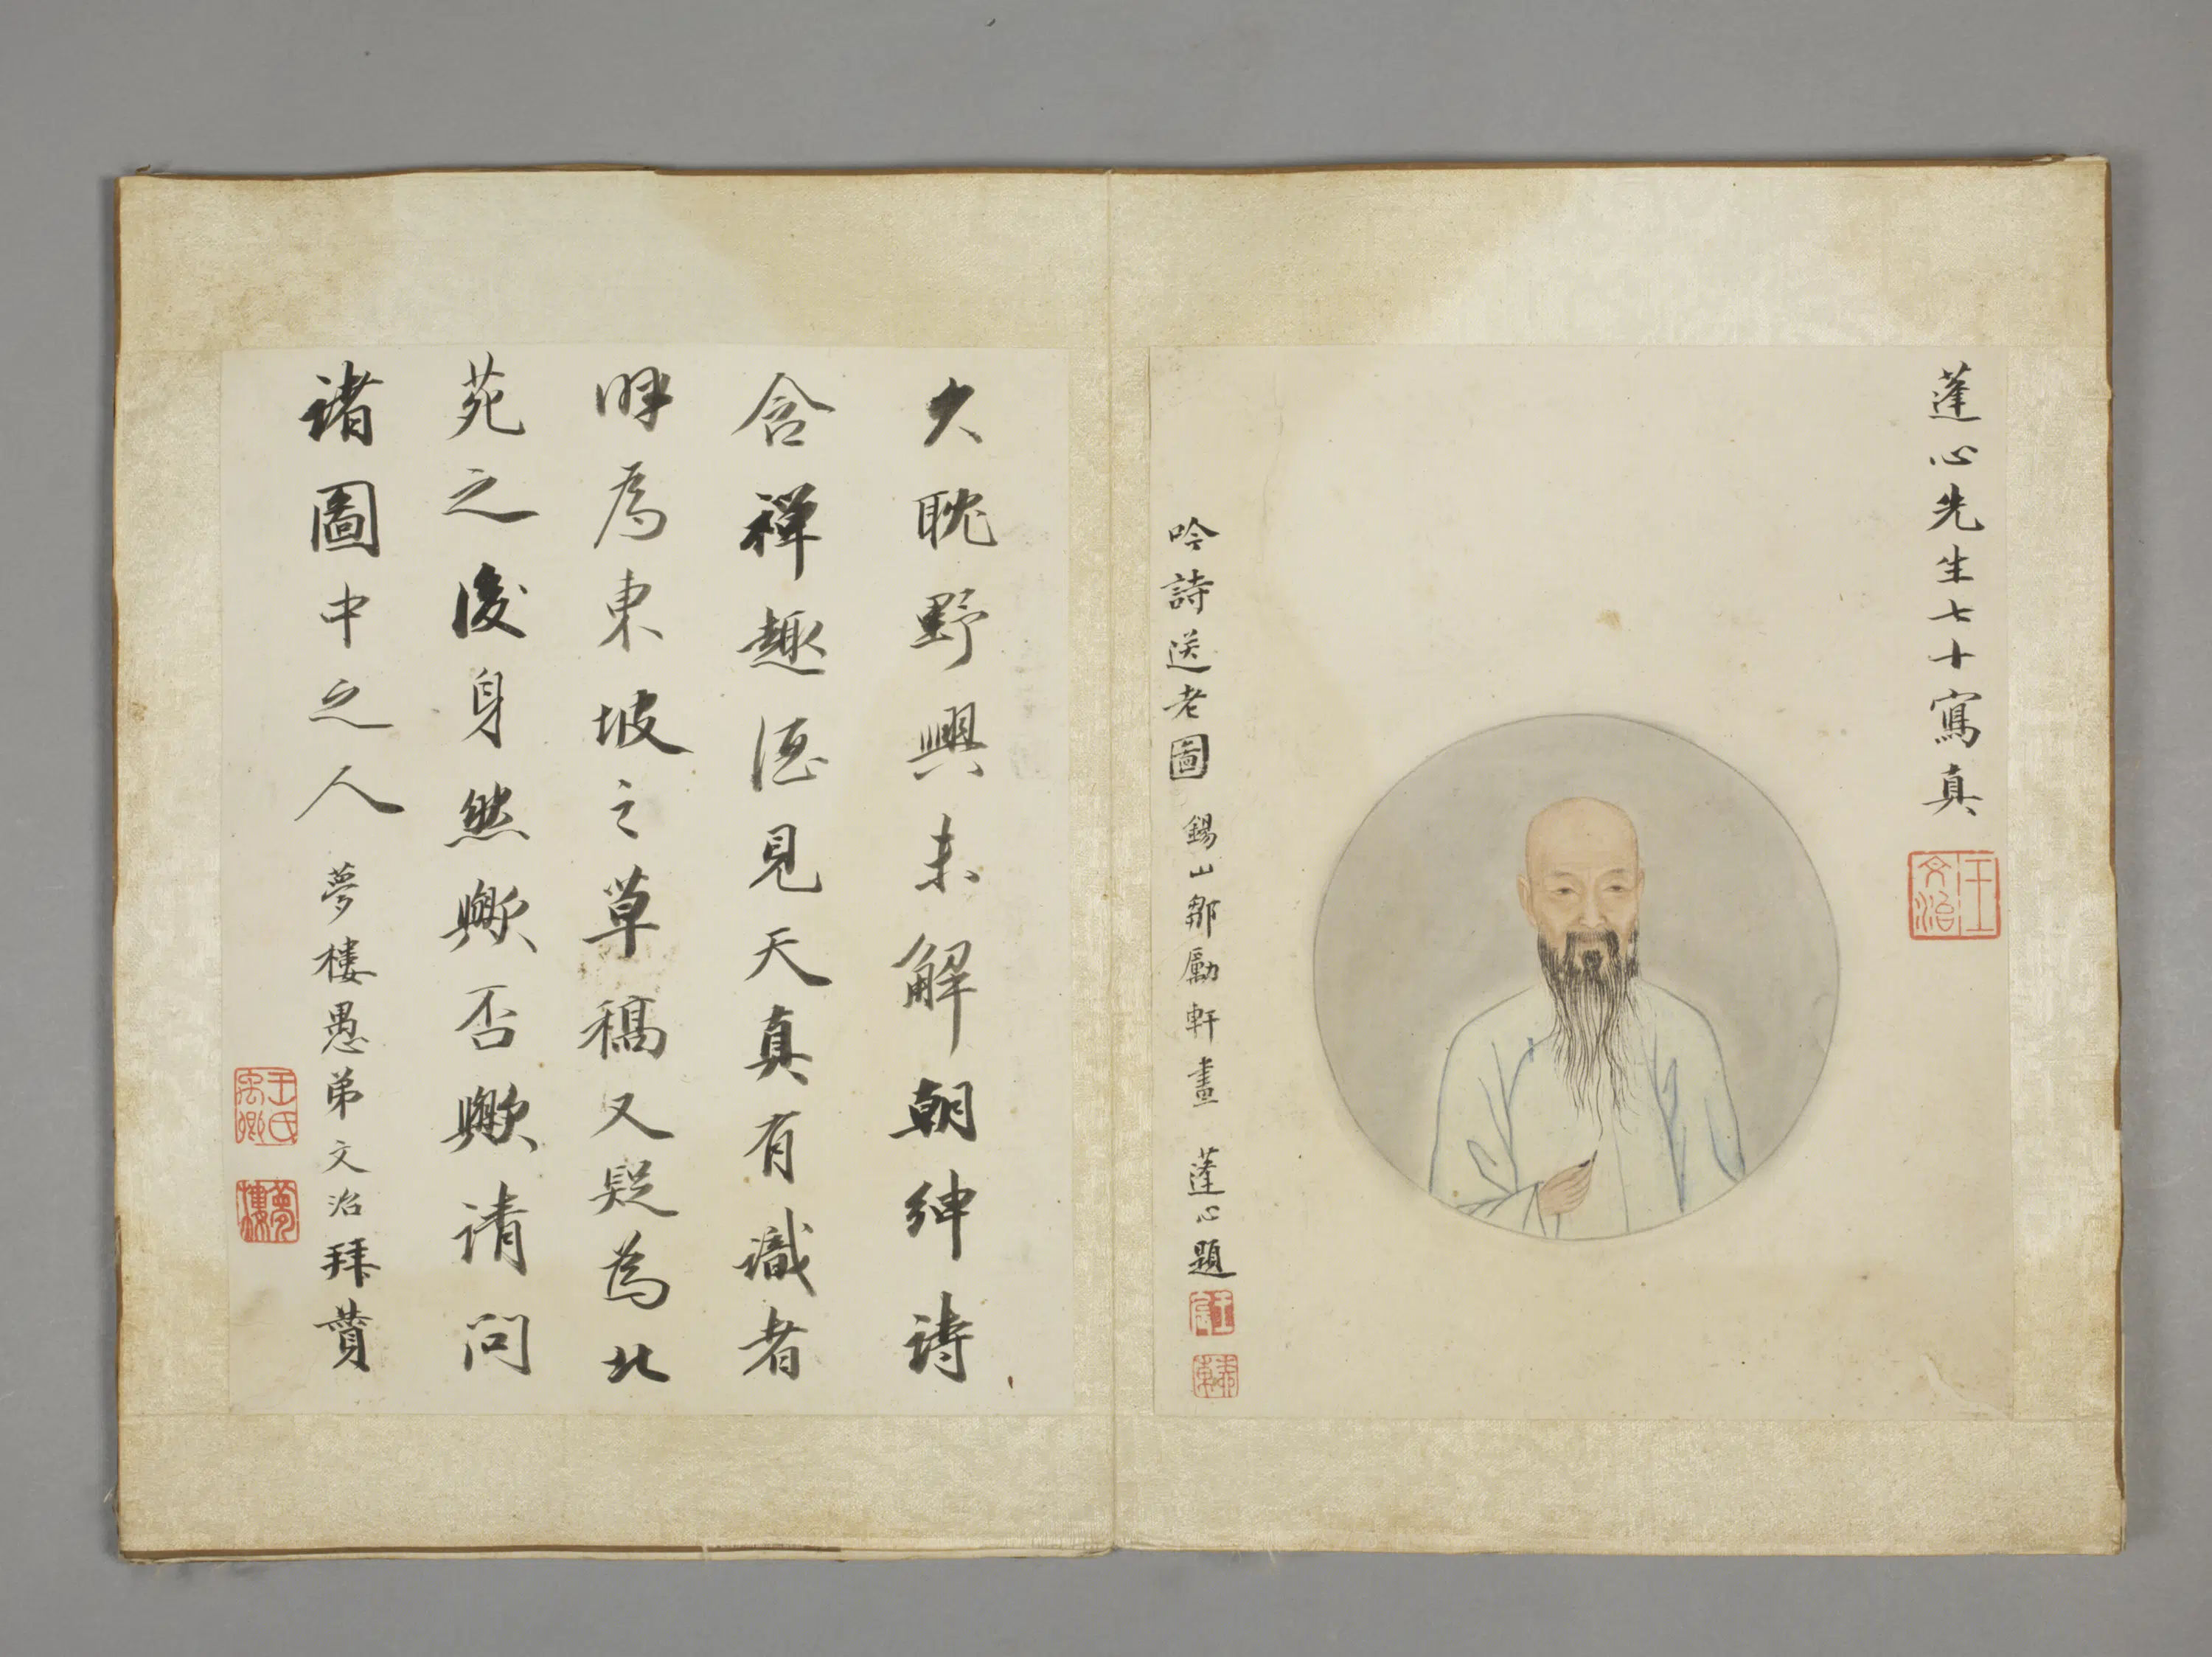 蓬心先生七十寫真
王文治
吟詩送老圖 錫山鄒勵軒畫 蓬心題
王宸
久耽野興未解朝紳詩
含禪趣酒見天真有識者
呼為東坡之草稿又疑為北
苑之後身然歟否歟請問
諸圖中之人 夢樓愚弟文治拜贊
王氏禹卿
夢樓